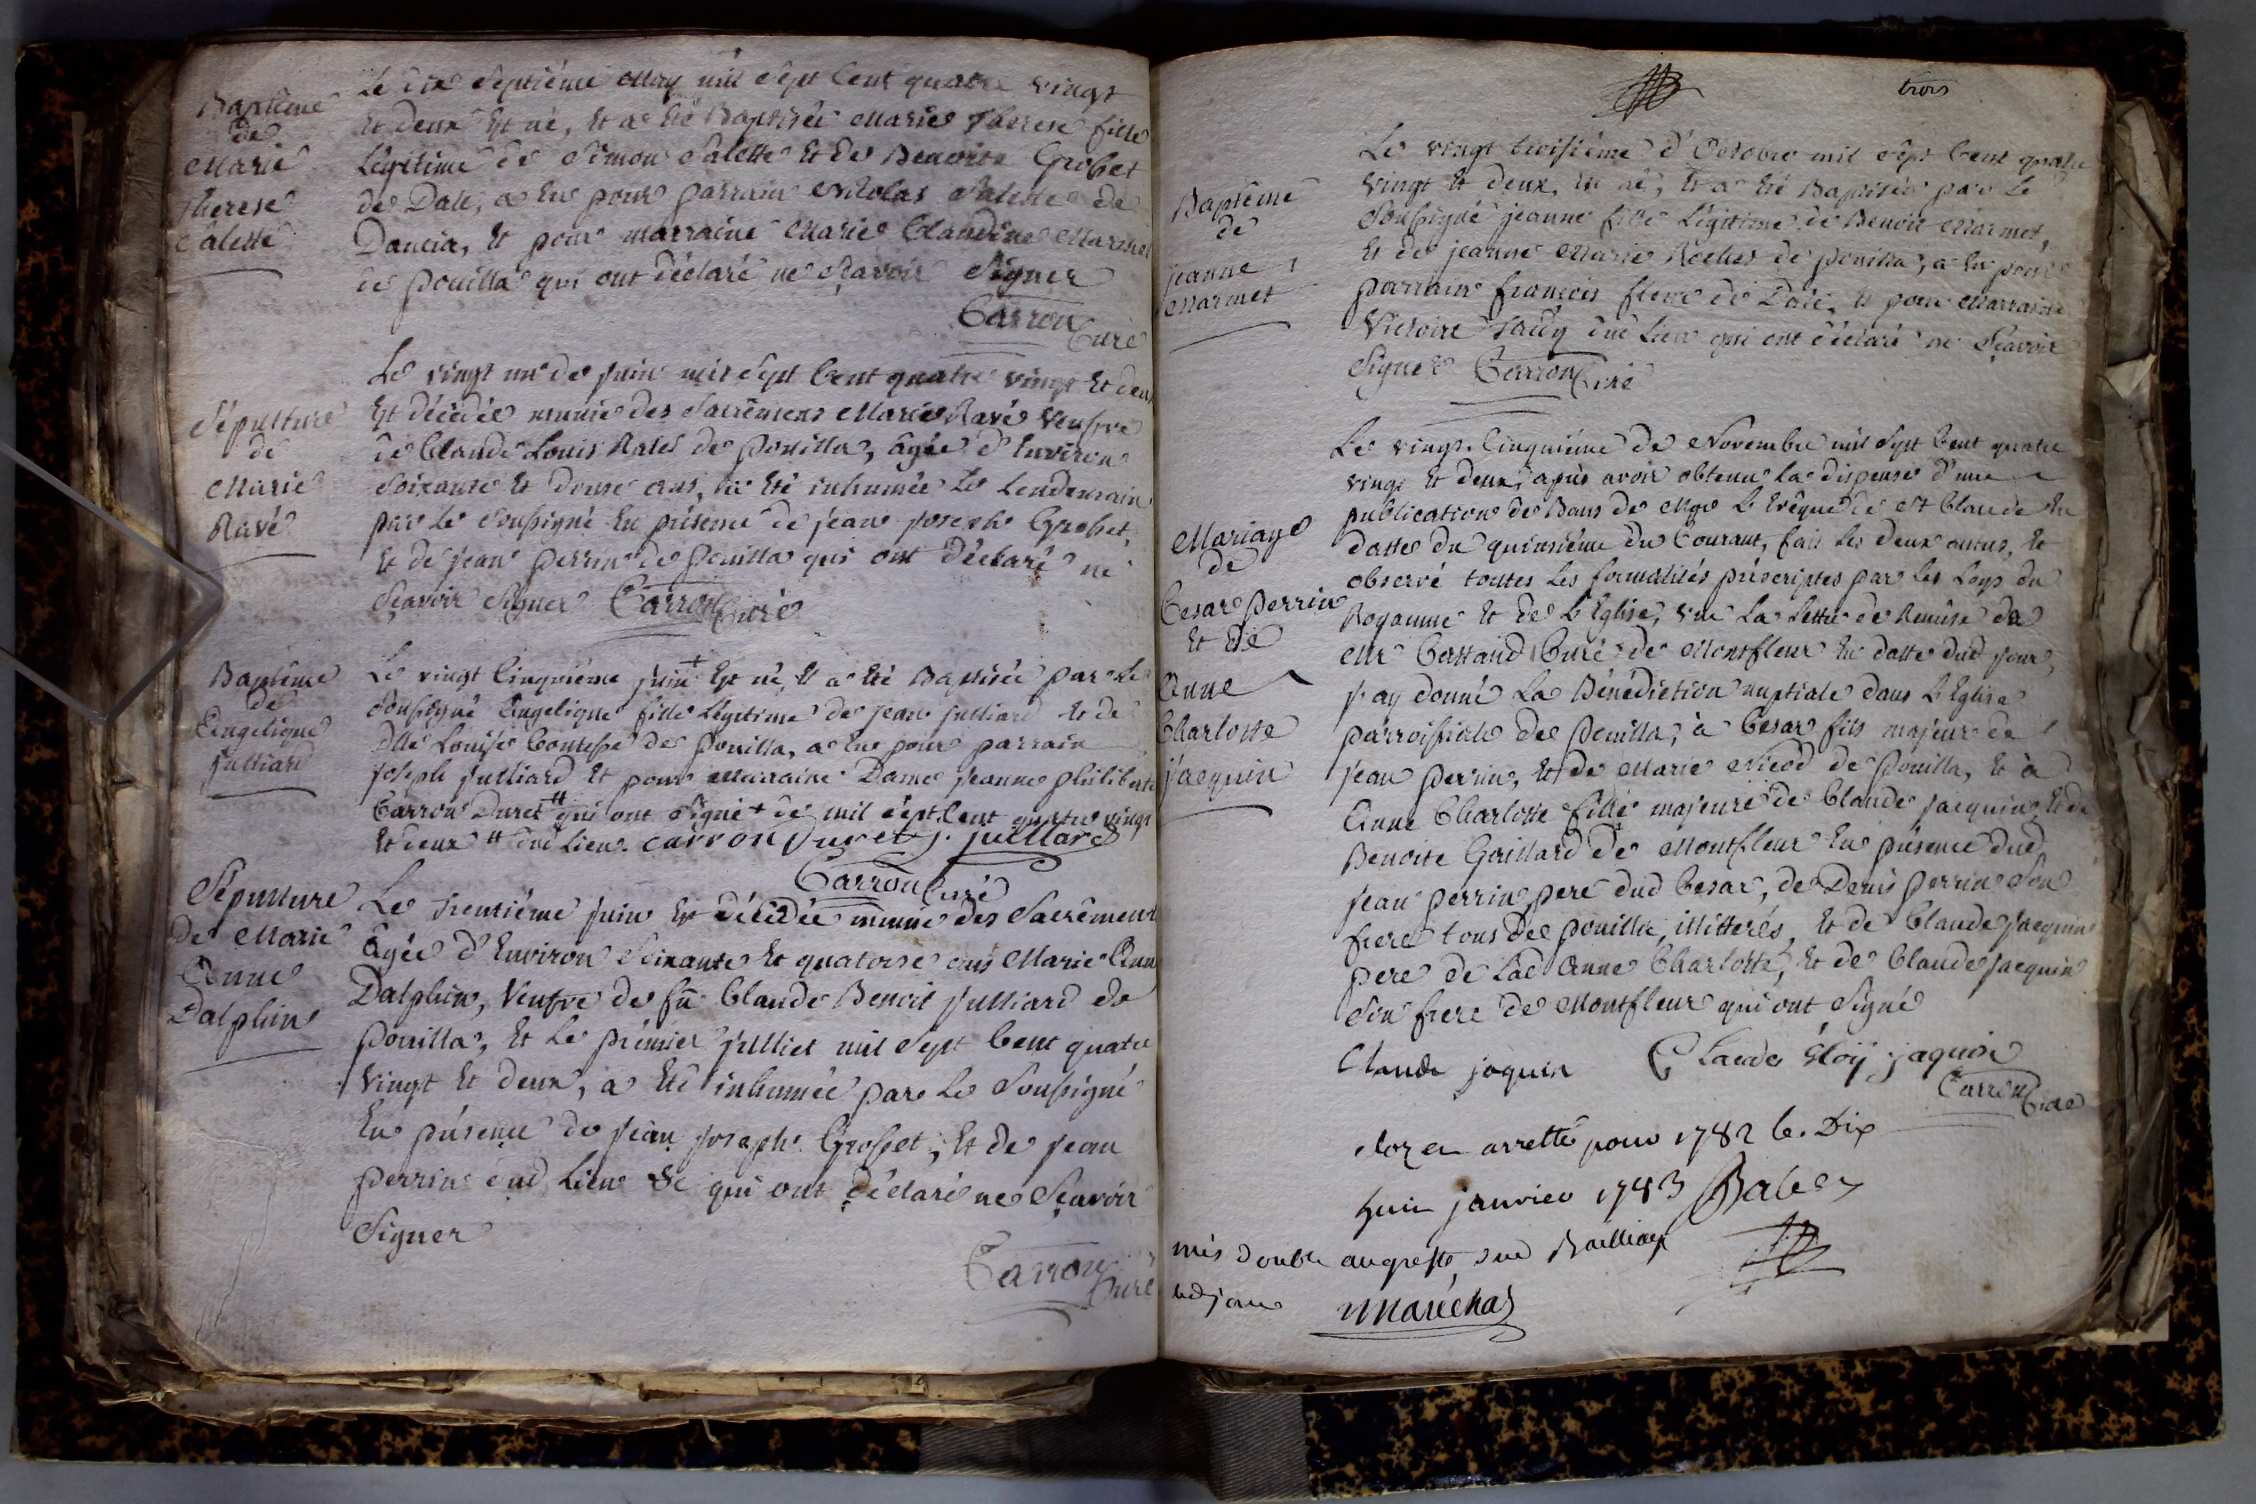 Baptême
de
Marie
Therese
Salette
Le dix septiéme May mil sept Cent quatre vingt
Et deux Est né, Et a Eté Baptisée Marie Therese fille
Légitime de Simon Salette Et de Benoite Grobet
de Dale, a Eu pour parrain Nicolas Salette de
Dancia, Et pour marraine Marie Claudine Marmet
de pouilla qui ont déclaré ne sçavoir Signer
Carron
Curé
Sépulture
de
Marie
Ravé
Le vingt un de juin mil Sept Cent quatre vingt Et deux
Est décédée munie des Sacrêmens Marie Ravé Veufve
de Claude Louis Ralet de pouilla, âgée d'Environ
Soixante Et douse ans, a Eté inhumée Le Lendemain
par Le Soussigné En présence de jean joseph Grobet,
Et de jean perrin de pouilla qui ont déclaré ne
Sçavoir Signer Carron Curé
Baptême
de
Angelique
julliard
Le vingt Cinquiéme juin + Est né, Et a Eté Baptisée par Le
Soussigné Angelique fille Légitime de jean julliard Et de
Dlle Louise Contesse de pouilla, a Eu pour parrain
joseph julliard Et pour Marraine Dame jeanne philiberte
Carron Duret # qui ont Signé + de mil sept Cent quatre vingt
Et deux # dud Lieu. carron Duret j. juillard
Carron Curé
Sépulture
De Marie
Anne
Dalphin
Le trentiéme juin Est décédée munie des Sacrêmens
âgée d'Environ Soixante Et quatorse ans Marie Anne
Dalphin, Veufve de fû Claude Benoit julliard de
pouilla, Et Le prémier juilliet mil Sept Cent quatre
Vingt Et deux, a Eté inhumée par Le Soussigné
En présence de jean joseph Grosset, Et de jean
perrin dud Lieu qui ont déclaré ne Sçavoir
Signer
Carron
Curé
trois
Baptême
de
jeanne
Marmet
Le vingt troisiéme d'Octobre mil Sept Cent quatre
Vingt Et deux, Est né, Et a Eté Baptisée par Le
Soussigné jeanne fille Légitime de Benoit Marmet,
Et de jeanne Marie Rochet de pouilla, a Eu pour
parrain françois de Dale, Et pour Marraine
Victoire dud Lieu qui ont déclaré ne Sçavoir
Signer Carron Curé
Mariage
de
Cesar perrin
Et de
Anne
Charlotte
jacquin
Le vingt Cinquiéme de Novembre mil Sept Cent quatre
vingt Et deux, après avoir obtenu La dispense d'une
publication de Bans de Mgr L'Evêque de St Claude En
datte du quinsiéme du Courant, fait Les deux autres, Et
observé toutes Les formalités préscriptes par les Loys du
Royaume Et de L'Eglise, vu La Lettre de Remise de
Mr Curé de Montfleur En datte dud jour,
j'ay donné La Bénédiction nuptiale dans L'Eglise
parroissiale de pouilla, à Cesar fils majeur de
jean perrin, Et de Marie Nicod de pouilla, Et à
Anne Charlotte fille majeure de Claude jacquin Et de
Benoite Gaillard de Montfleur En présence dud
jean perrin pere dud Cesar, de Denis perrin Son
frere tous de pouilla, illitterés, Et de Claude jacquin
pere de lad Anne Charlotte, Et de Claude jacquin
Son frere de Montfleur qui ont Signé
Claude jaquin Claude Eloÿ jaquin
Carron Curé
cloz et arretté pour 1782 le Dix
huit janvier 1783
mis double au greffe dud Bailliage
led jour Maréchal